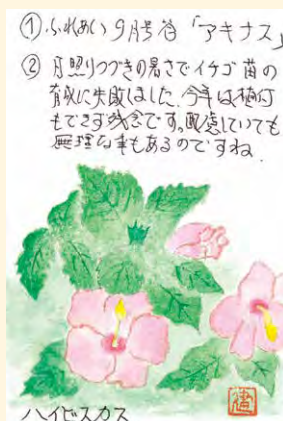 ① ふれあい9月号答「アキナス」
② 日照りつづきの暑さでイチゴ苗の
育成に失敗しました。今年は植付
もできず残念です。配慮していても
無理な事もあるのですね.
ハイビスカス